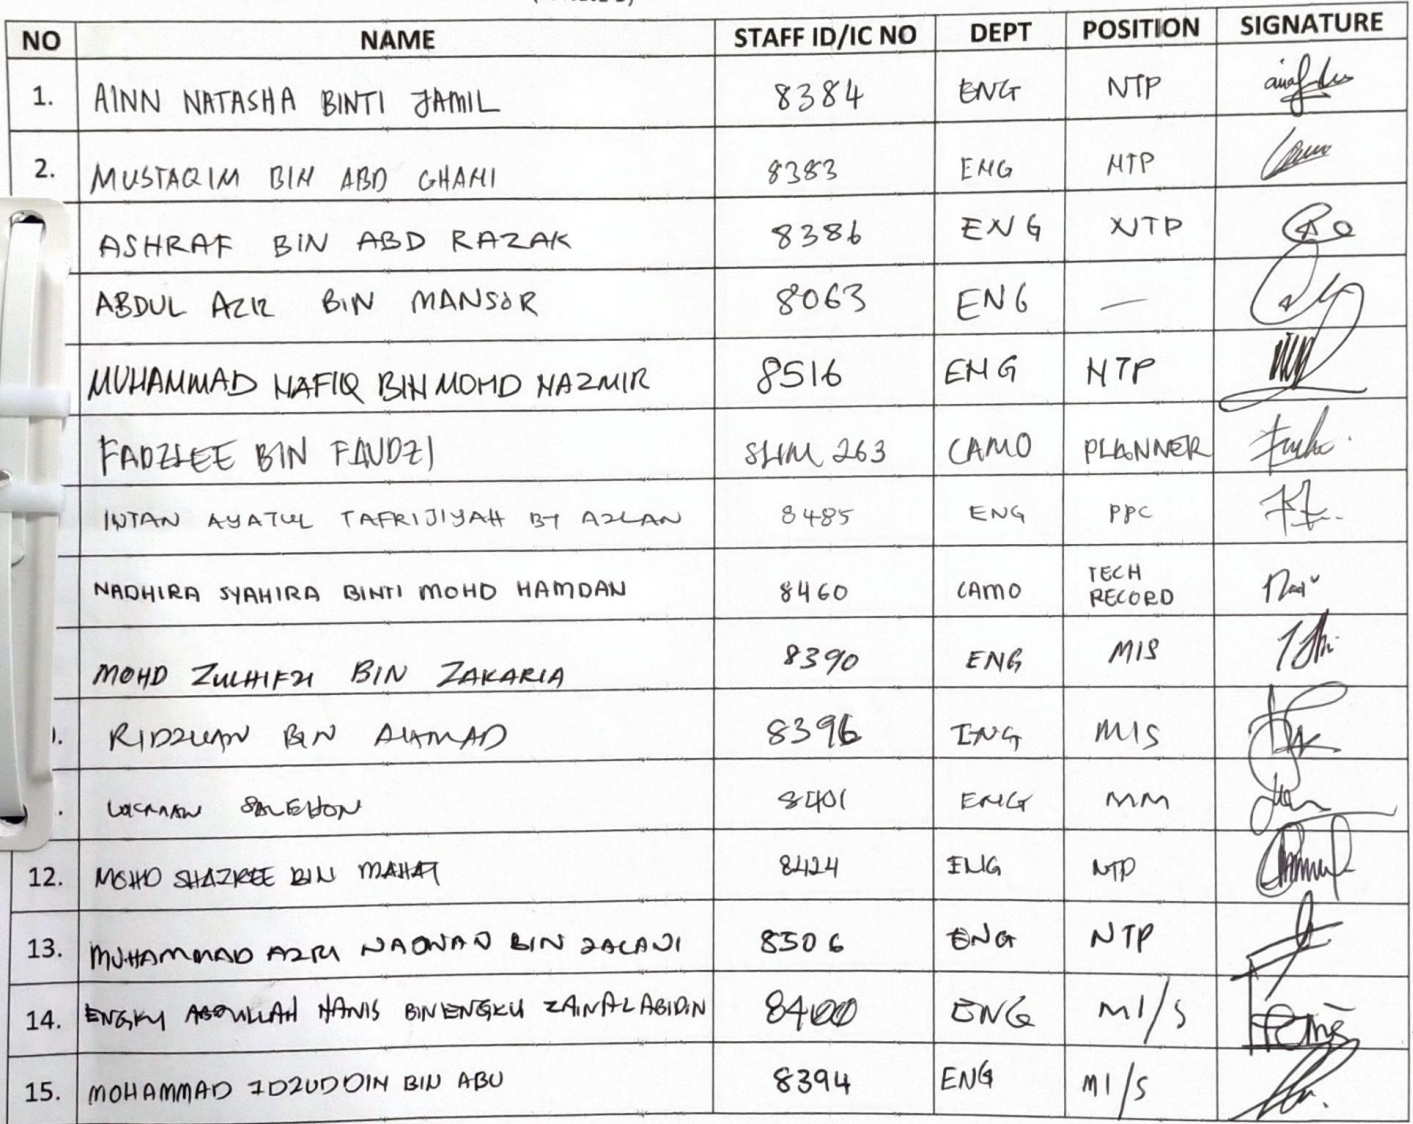 NO NAME STAFF ID/IC NO DEPT POSITION SIGNATURE
1. AINN NATASHA BINTI JAMIL 8384 ENG NTP
2. MUSTAQIM BIN ABD GHANI 8383 ENG NTP
ASHRAF BIN ABD RAZAK 8386 ENG NTP
ABDUL AZIZ BIN MANSOR 8063 ENG —
MUHAMMAD NAFIQ BIN MOHD NAZMIR 8516 ENG NTP
FADZLEE BIN FAUDZI SLIM 263 CAMO PLANNER
INTAN AYATUL TAFRIJIYAH BT AZLAN 8485 ENG PPC
NADHIRA SYAHIRA BINTI MOHD HAMDAN 8460 CAMO TECH
RECORD
MOHD ZULHIFZI BIN ZAKARIA 8390 ENG MIS
RIDZUAN BIN AHMAD 8396 ENG MIS
LOKMAN SALEHON 8401 ENG MM
12. MOHD SHAZREE BIN MAHAT 8424 ENG NTP
13. MUHAMMAD AZRI BIN 8506 ENG NTP
14. ENGKU ABDULLAH HANIS BIN ENGKU ZAINAL ABIDIN 8400 ENG MI/S
15. MOHAMMAD IDZUDDIN BIN ABU 8394 ENG MI/S